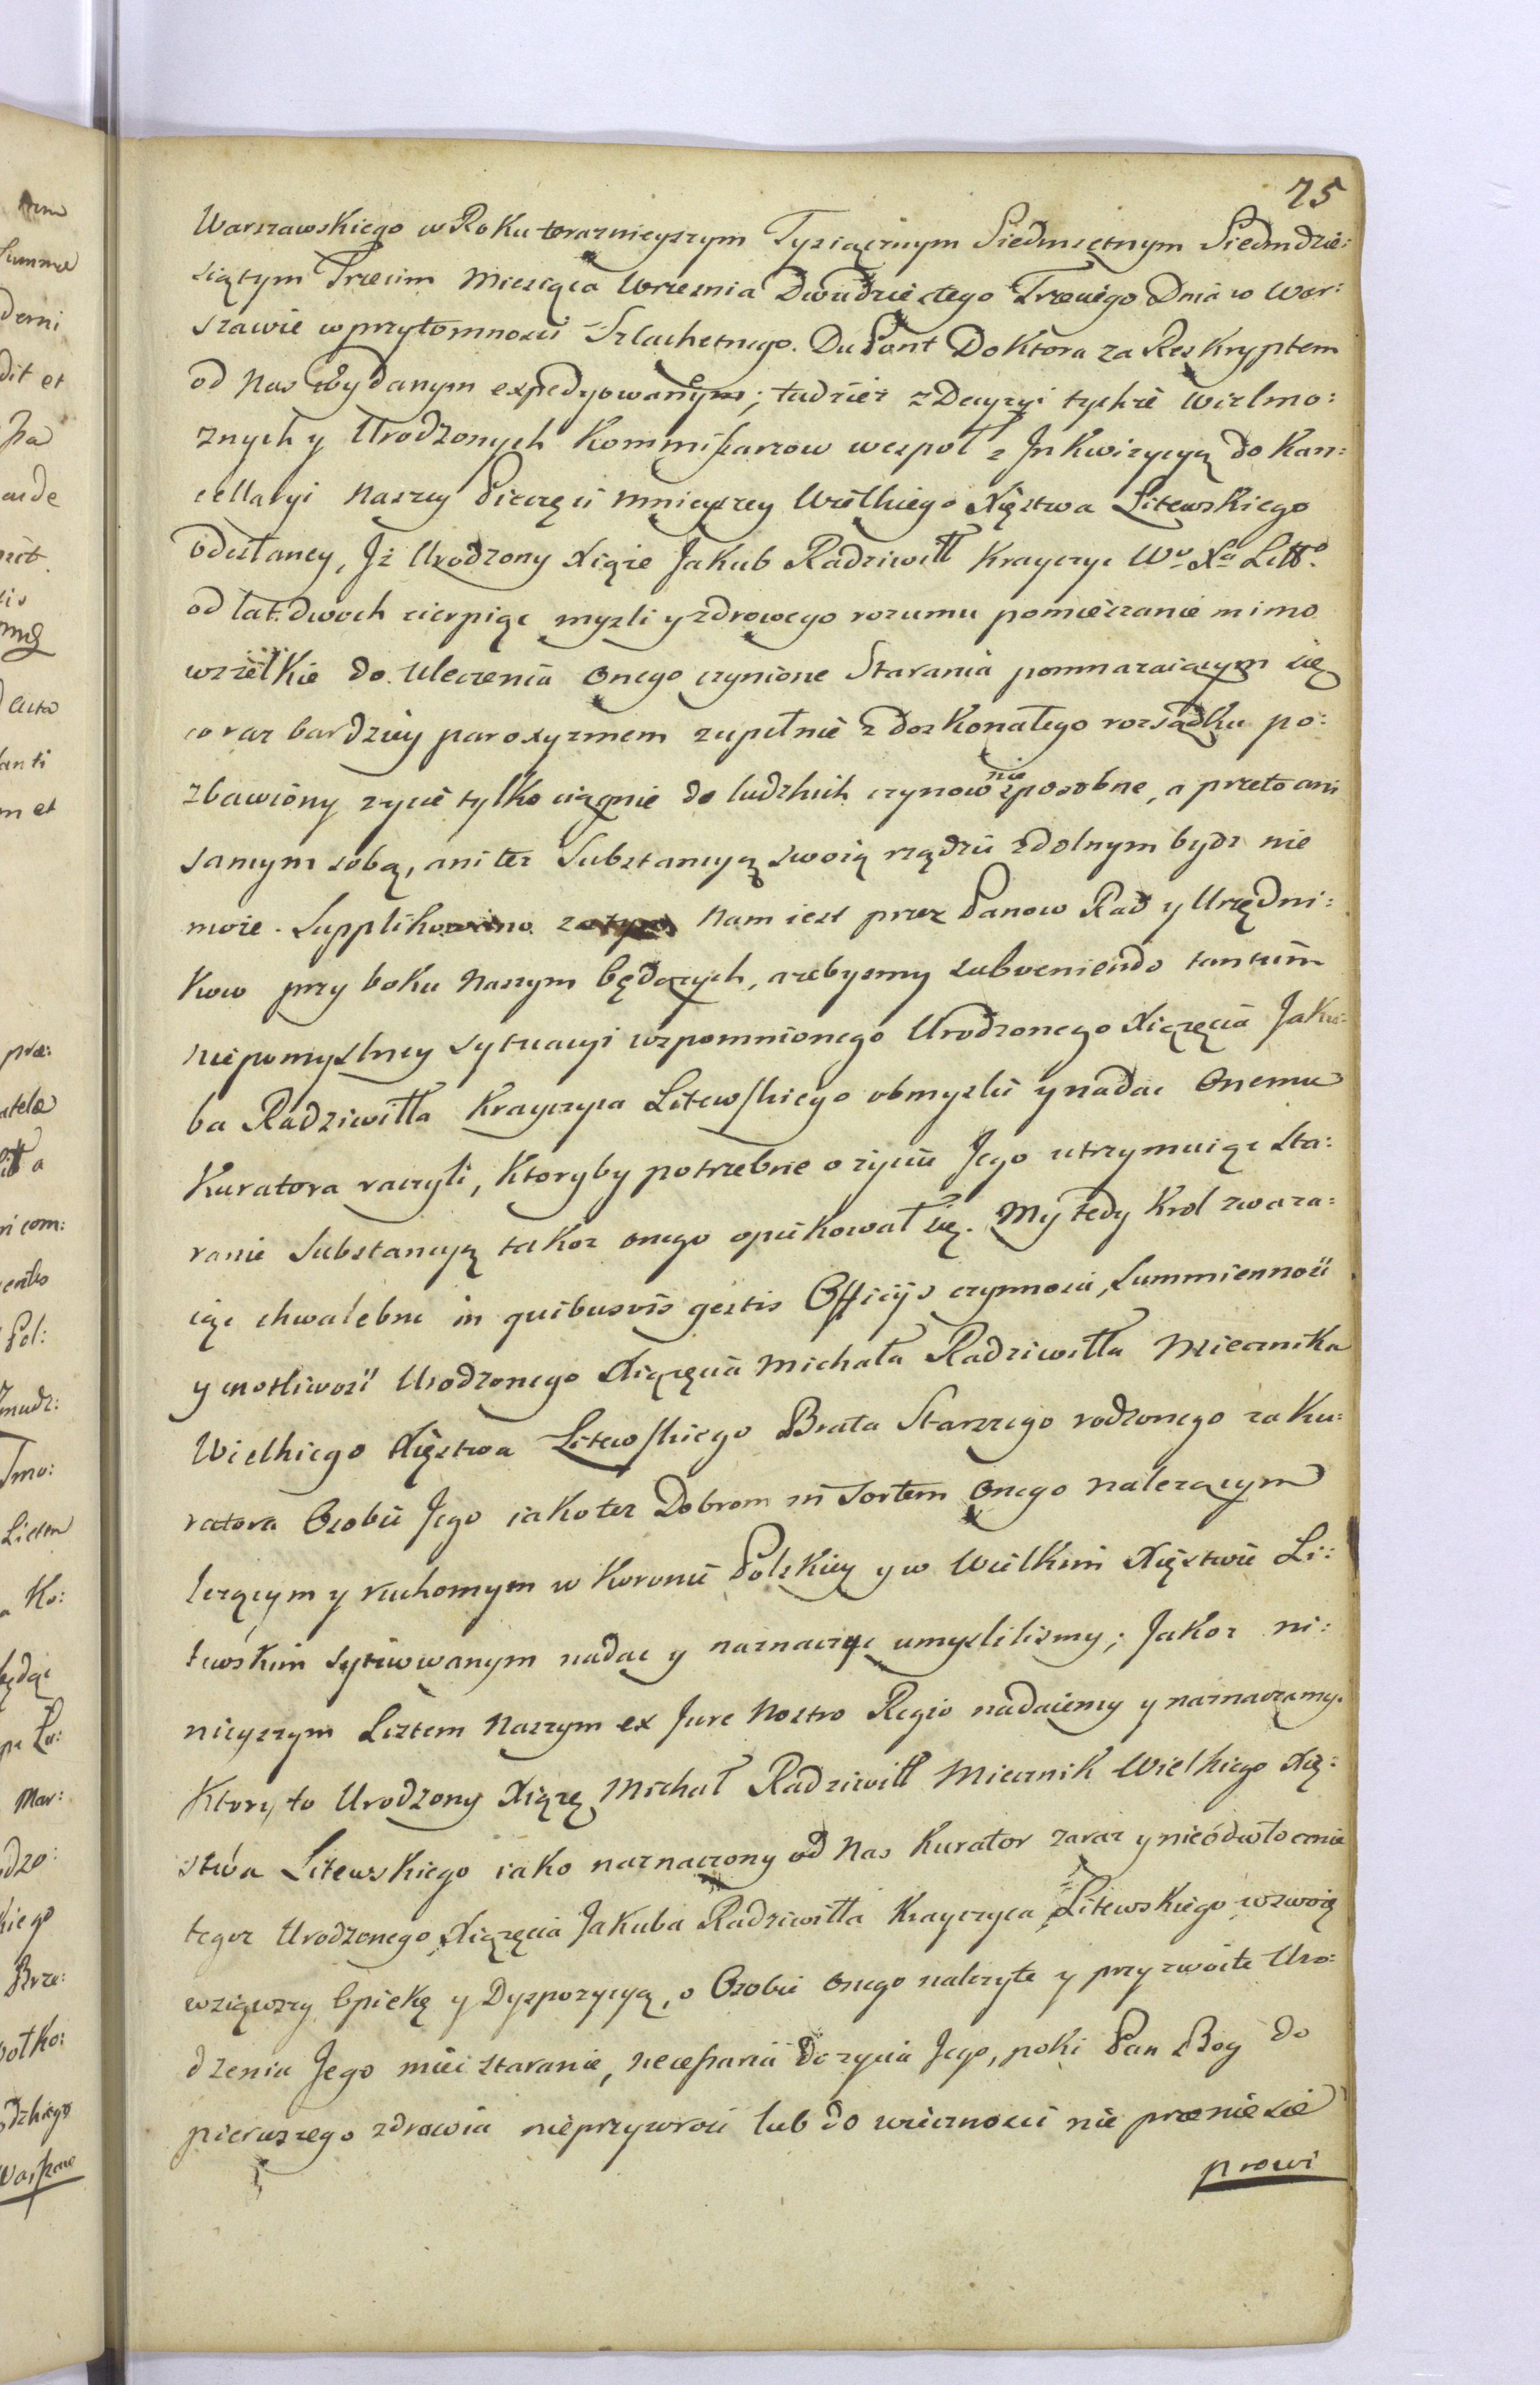 75
Warszawskiego w Roku teraznieyszym Tysiącznym Siedmsetnym Siedmdzie:
siątym Trzecim Miesiąca Wrzesnia Dwudziestego Trzeciego Dnia w War:
szawie w przytomnosci Szlachetnego Du Pont Doktora za Reskryptem
od Nas Wydanym expedyowanym; tudziesz z Decyzyi tychże Wielmo:
znych y Urodzonych Kommissarzow wespoł z Inkwizycyą do Kan:
cellaryi Naszey Pieczęci mnieyszey Wielkiego Xięstwa Litewskiego
odesłaney, Iż Urodzony Xiąże Jakub Radziwiłł Krayczyc Wo Xa Litto.
od lat dwoch cierpiąc mysli y zdrowego rozumu pomieszanie mimo
wszelkie do uleczenia onego czynione Starania pomnażaiącym się
coraz bardziey paroxyzmem zupełnie z doskonałego rozsądku po:
zbawiony zycie tylko ciągnie do ludzkich czynow niesposobne, a przeto ani
samym sobą, ani tez Substancyą swoią rządzić zdolnym bydz nie
może. Supplikowano Nam iest przez Panow Rad y Urzędni:
kow przy boku Naszym będących, azebysmy subveniendo tantum
niepomyslney sytuacyi wspomnionego Urodzonego Xiążęcia Jaku:
ba Radziwiłła Krayczyca Litewskiego obmyslić y nadac Onemu
Kuratora raczyli, Ktoryby potrzebne o życiu Jego utrzymuiąc sta:
ranie Substancyą takoz onego opiekował się. My tedy Krol zwaza:
iąc chwalebne in quibusvis gestis Officijs czynnosci, Summiennosć
y cnotliwosć Urodzonego Xiążęcia Michała Radziwiłła Miecznika
Wielkiego Xięstwa Litewskiego Brata Starszego rodzonego za Ku:
ratora Osobie Jego iako tez Dobrom in Sortem onego nalezącym
lezącym y ruchomym w Koronie Polskiey y w Wielkim Xięstwie Li:
tewskim sytuowanym nadac y naznaczyc umyslilismy; Jakoz ni:
nieyszym Listem Naszym ex Jure Nostro Regio nadaiemy y naznaczamy.
Ktory to Urodzony Xiążę Michał Radziwiłł Miecznik Wielkiego Xię:
stwa Litewskiego iako naznaczony od Nas Kurator zaraz y nieodwłocznie
tegoz Urodzonego Xiążęcia Jakuba Radziwiłła Krayczyca Litewskiego w swoią
wziąwszy Opiekę y Dyspozycyą, o Osobie onego nalezyte y przyzwoite Uro:
dzeniu Jego mieć staranie, necessaria do zycia Jego, poki Pan Bog do
pierwszego zdrowia nieprzywroci lub do wiecznosci nie przeniesie
prowi